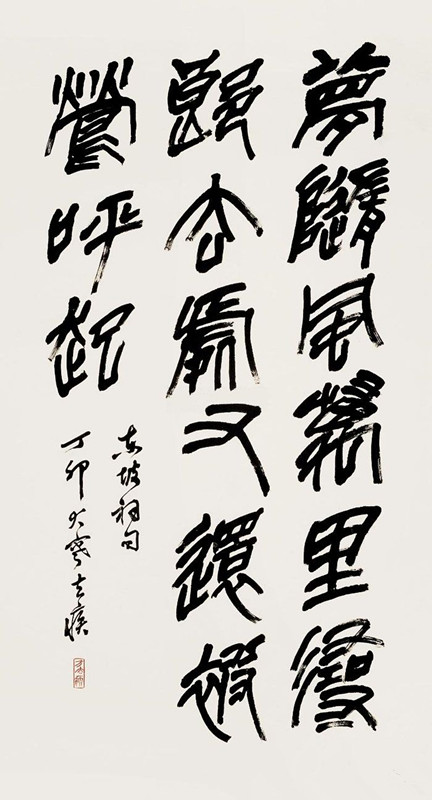 夢隨風萬里尋
郎去處又還被
鶯呼起
東坡詞句
丁卯大寒去疾